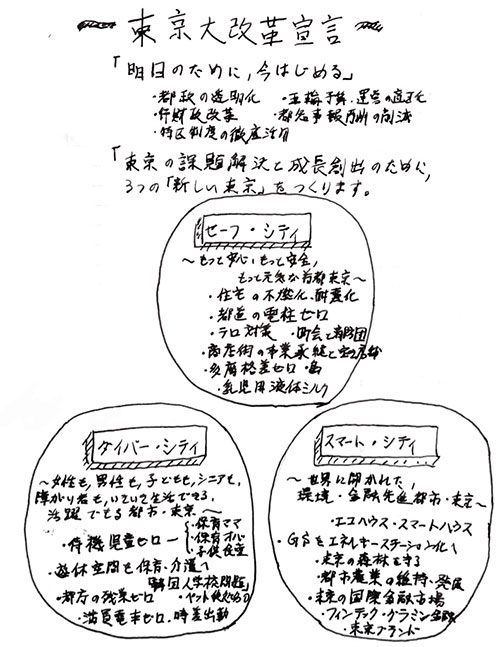 東京大改革宣言
「明日のために,今はじめる」
・都政の透明化 ・五輪予算、運営の適正化
・行財政改革 ・都知事報酬の削減
・特区制度の徹底活用
「東京の課題解決と成長創出のために,
3つの「新しい東京」をつくります。
セーフ・シティ
〜もっと安心,もっと安全,
もっと元気な首都東京〜
・住宅の不燃化、耐震化
・都道の電柱ゼロ
・テロ対策 ・町会と消防団
・商店街の事業承継と空き店舗
・多摩格差ゼロ・島
・乳児用液体ミルク
ダイバー・シティ
〜女性も,男性も,子どもも,シニアも,
障がい者も,いきいき生活できる,
活躍できる都市・東京〜
・待機児童ゼロー
・保育ママ
・保育オバ
・子供食堂
・遊休空間を保育、介護へ
「韓国人学校問題」
・都庁の残業ゼロ ・ペット殺処分0
・満員電車ゼロ、時差出勤
スマート・シティ
〜世界に開かれた,
環境・金融先進都市・東京〜
・エコハウス・スマートハウス
・GSをエネルギーステーション化へ
・東京の森林を守る
・都市農業の維持、発展
・東京の国際金融市場
・フィンテック・グラミン金融
・東京ブランド